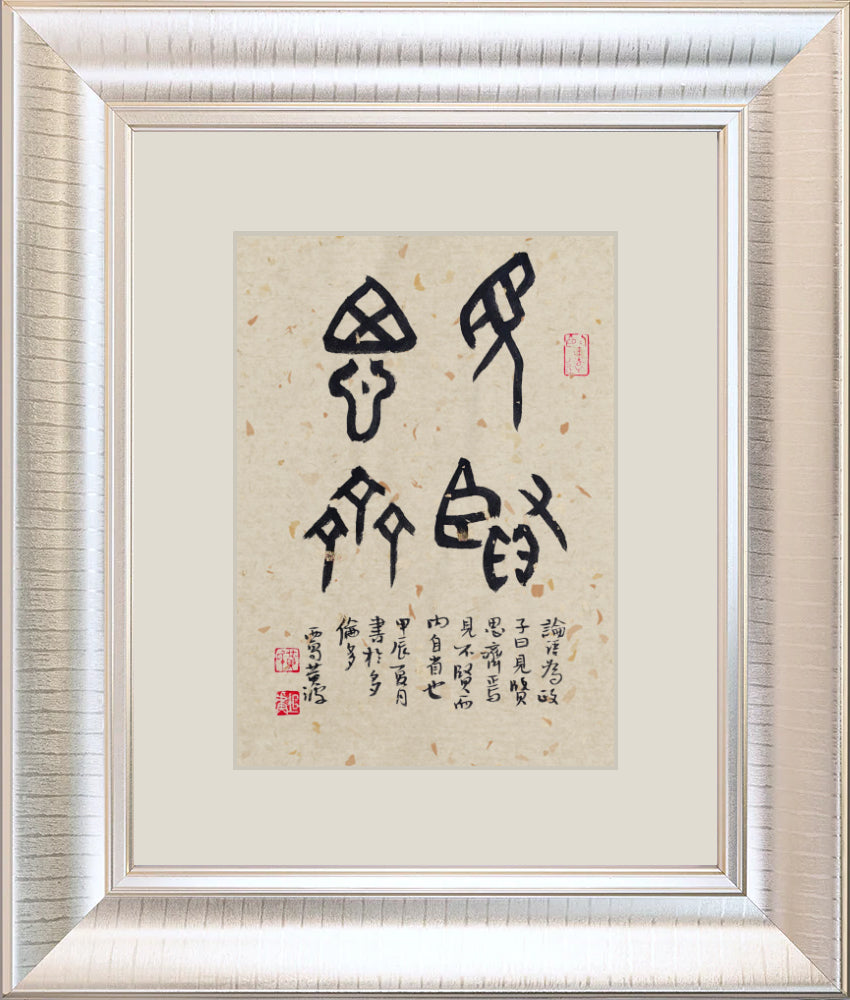 見賢
思齊
論語為政
子曰見賢
思齊焉
見不賢而
內自省也
甲辰夏月
書於多
倫多
黃波